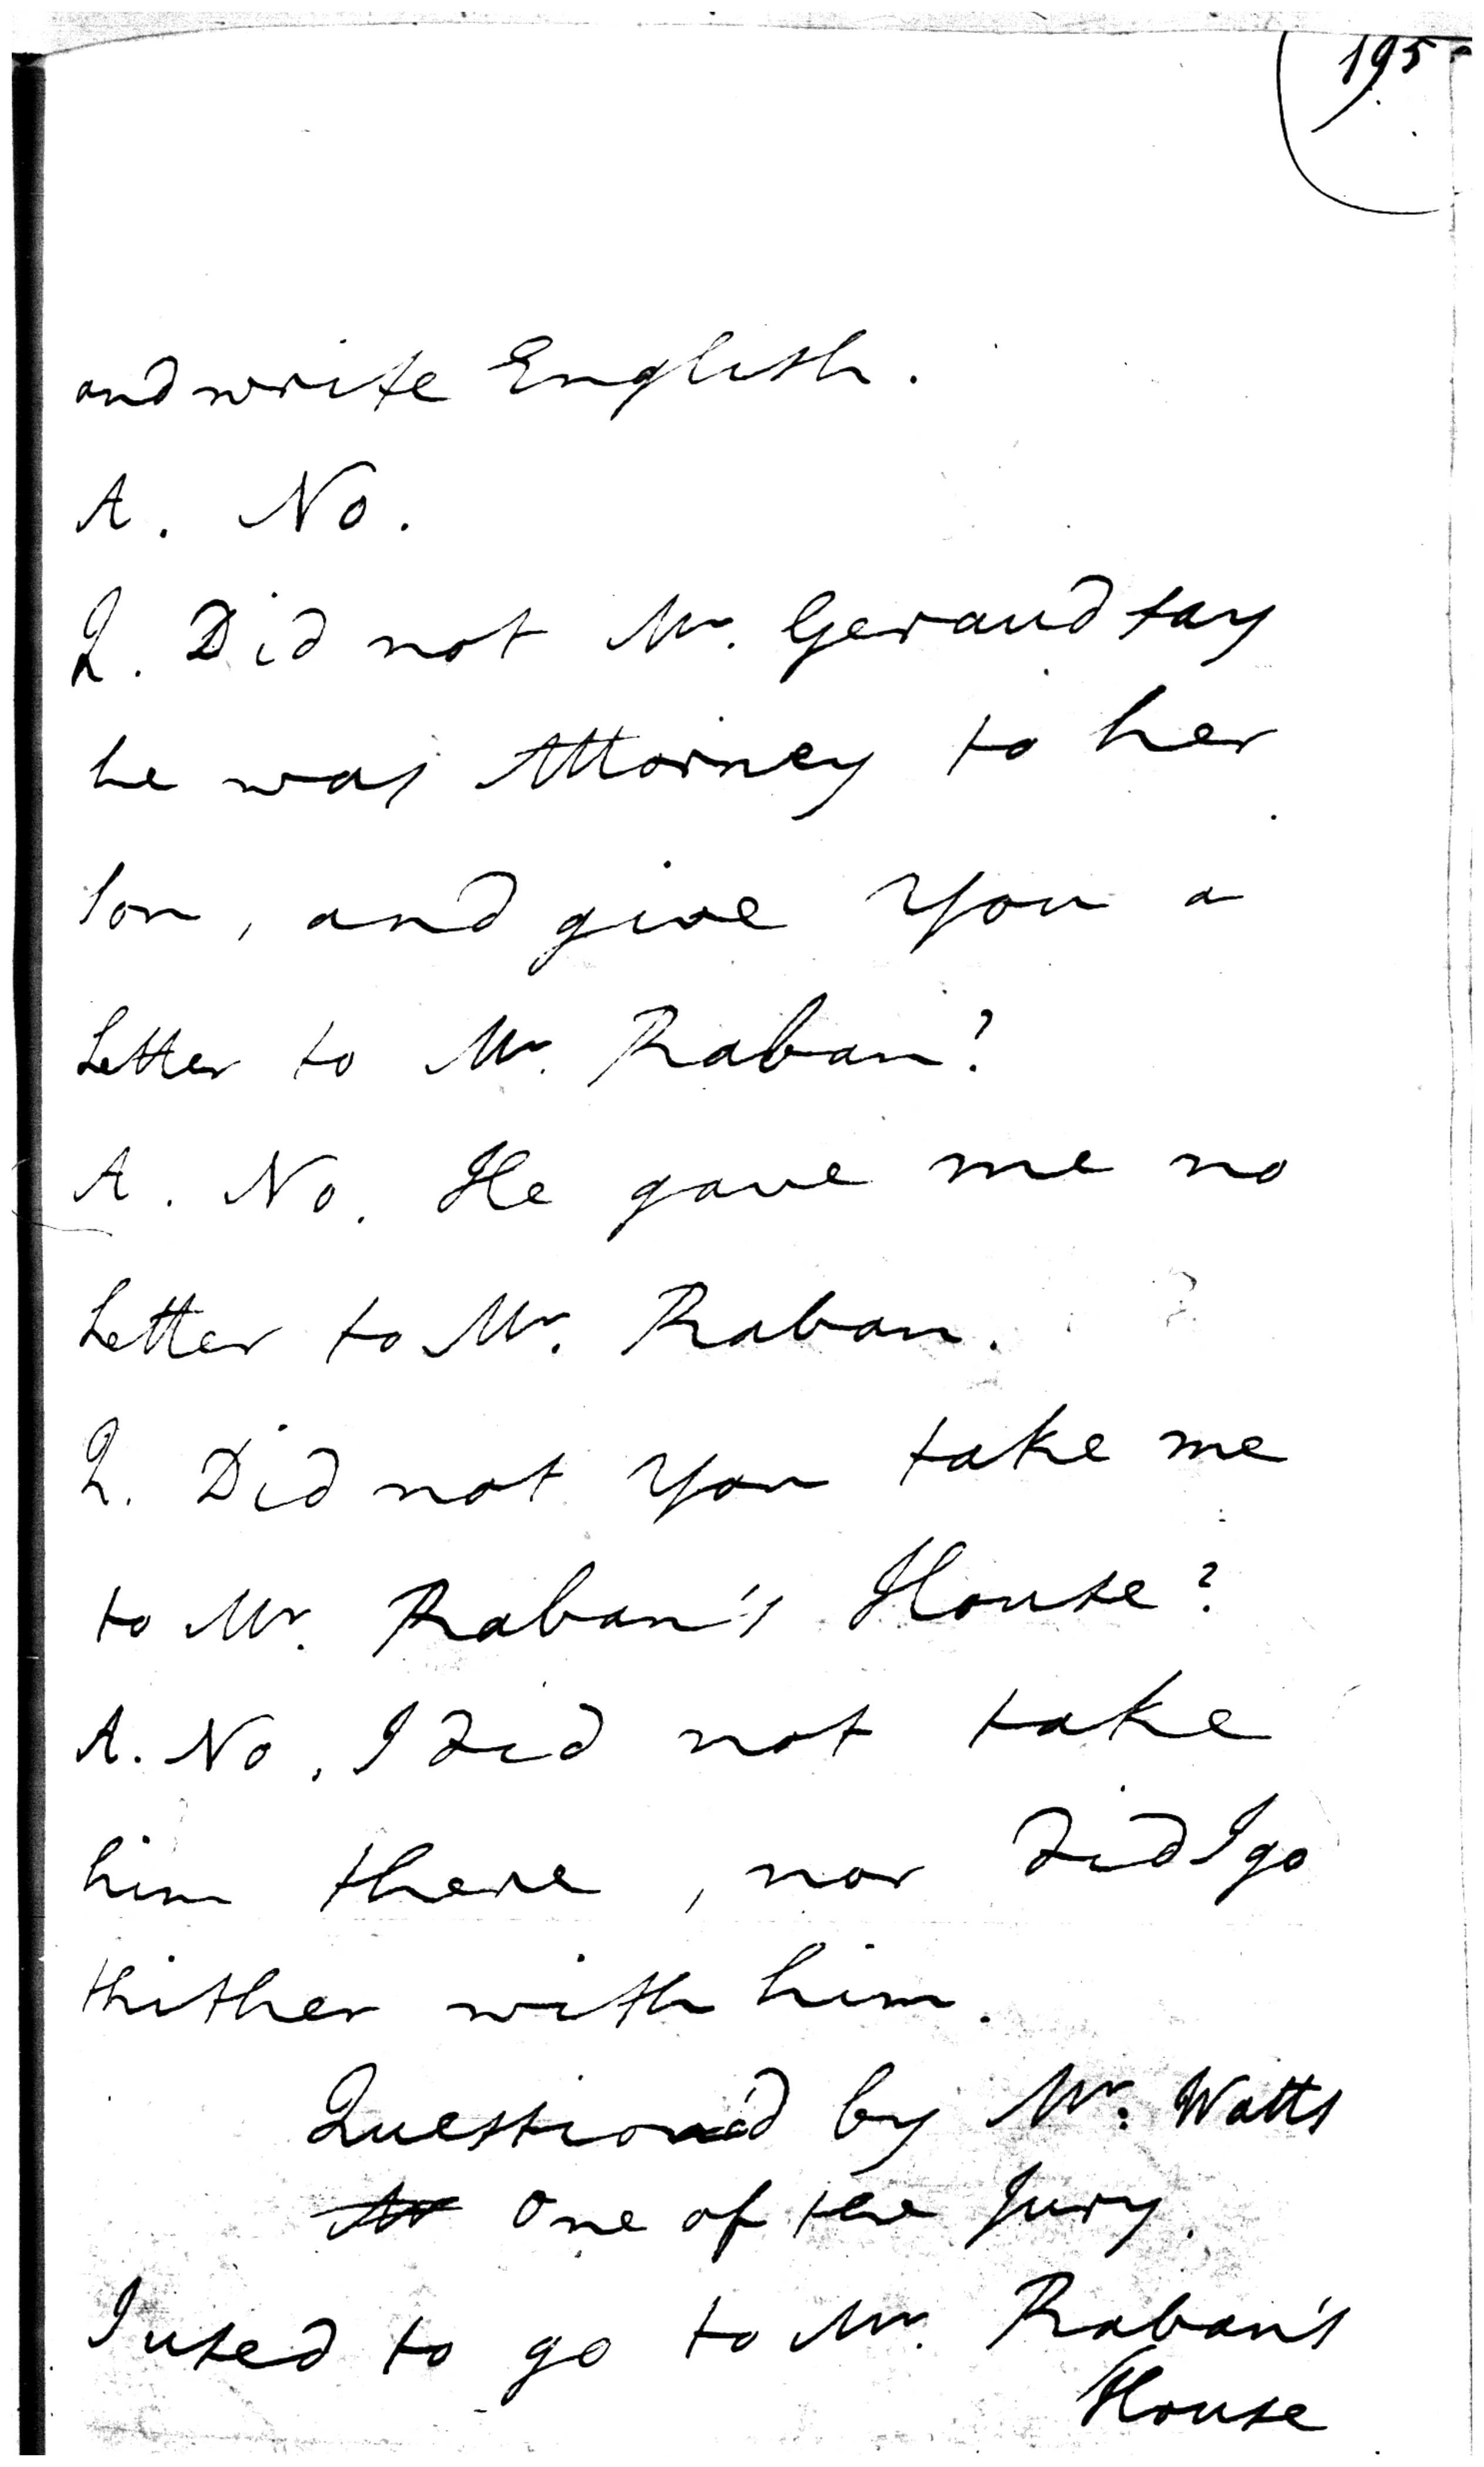 195
and write English.
A. No.
Q. Did not Mr. Geraud say
he was Attorney to her
son, and give You a
Letter to Mr. Raban?
A. No. He gave me no
Letter to Mr. Raban.
Q. Did not You take me
to Mr. Raban's House?
A. No, I did not take
him there, nor did I go
thither with him.
Question'd by Mr. Watts
One of the Jury.
I used to go to Mr. Raban's
House